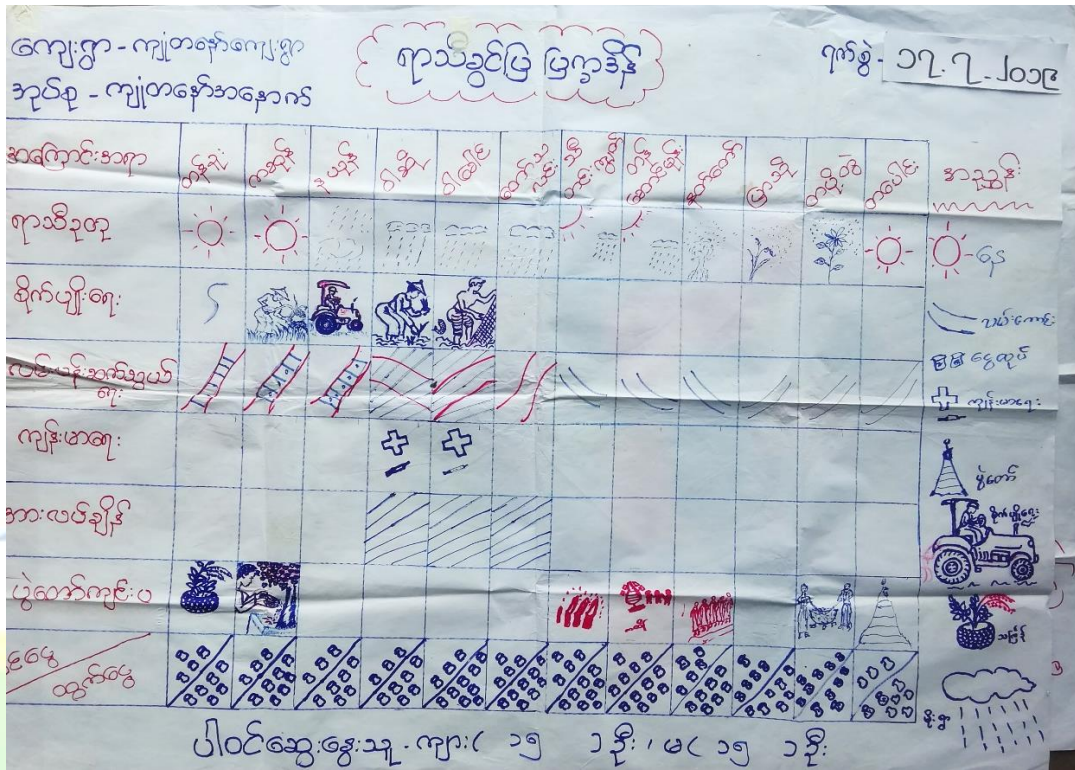 ကျေးရွာ - ကျုံတနော်ကျေးရွာ
အုပ်စု - ကျုံတနော်အနောက်
ရာသီခွင်ပြ ပြက္ခဒိန်
ရက်စွဲ - ၁၇.၇.၂၀၁၉
အကြောင်းအရာ တန်ခူး ကဆုန် နယုန် ဝါဆို ဝါခေါင် တော်သလင်း သီတင်းကျွတ် တန်ဆောင်မုန်း နတ်တော် ပြာသို တပို့တွဲ တပေါင်း အညွှန်း
ရာသီဥတု
နေ
စိုက်ပျိုးရေး
လမ်းကောင်း
လမ်းပန်းဆက်သွယ်ရေး
ငွေထုပ်
ကျန်းမာရေး
ကျန်းမာရေး
ပွဲတော်
အားလပ်ချိန်
စိုက်ပျိုးရေး
ပွဲတော်ကျင်းပ
သင်္ကြန်
ထွက်ငွေ
မိုးရွာ
ပါဝင်ဆွေးနွေးသူ - ကျား( ၁၅ )ဦး ၊ မ( ၁၅ )ဦး